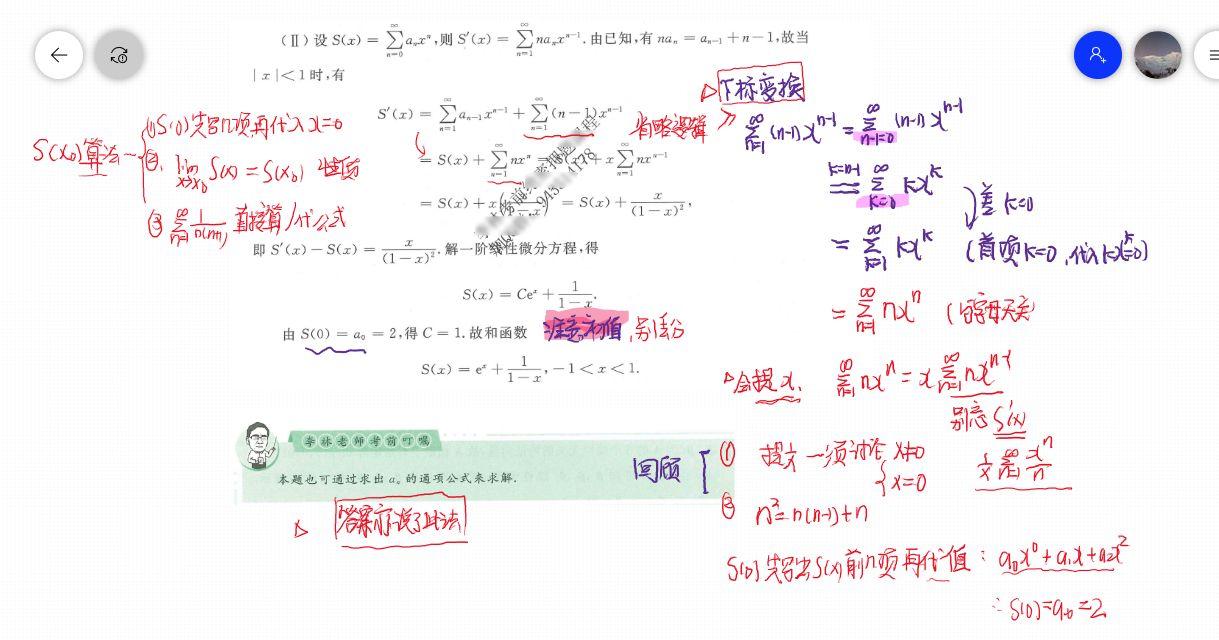 (Ⅱ) 设 S(x) = ∑_{n=0}^{∞} a_n x^n, 则 S′(x) = ∑_{n=1}^{∞} na_n x^{n-1}. 由已知, 有 na_n = a_{n-1} + n − 1, 故当
|x| < 1 时, 有
S′(x) = ∑_{n=1}^{∞} a_{n-1} x^{n-1} + ∑_{n=1}^{∞} (n − 1)x^{n-1}
= S(x) + ∑_{n=1}^{∞} nx^n = x ∑_{n=1}^{∞} nx^{n-1}
= S(x) + x = S(x) + x/(1−x)²,
即 S′(x) − S(x) = x/(1−x)². 解一阶线性微分方程, 得
S(x) = Ce^x + 1/(1−x).
由 S(0) = a₀ = 2, 得 C = 1. 故和函数
S(x) = e^x + 1/(1−x), −1 < x < 1.
李林老师考前叮嘱
本题也可通过求出 a_n 的通项公式来求解.
S(x₀)算法
① S(0) 先写n项再代入x=0
②. lim_{x→x₀} S(x) = S(x₀) 性质
③ ∑_{n=1}^{∞} 1/n(n+1) 直接算/代公式
省略逻辑
注意初值, 别丢分
答案亦说了此法
△ 下标变换
∑_{n=1}^{∞} (n-1)x^{n-1} = ∑_{n-1=0}^{∞} (n-1)x^{n-1}
k=n-1 = ∑_{k=0}^{∞} kx^k
差 k=0
= ∑_{k=1}^{∞} kx^k (首项k=0, 代入kx^k=0)
= ∑_{n=1}^{∞} nx^n (与字母无关)
△会提x. ∑_{n=1}^{∞} nx^n = x∑_{n=1}^{∞} nx^{n-1}
别忘 S′(x)
回顾
① 提x一须讨论 x≠0 x=0 1/x ∑_{n=1}^{∞} x^n/n
② n²=n(n-1)+n
S(0) 先写出S(x)前n项再代值: a₀x⁰+a₁x+a₂x²
∴ S(0)=a₀=2